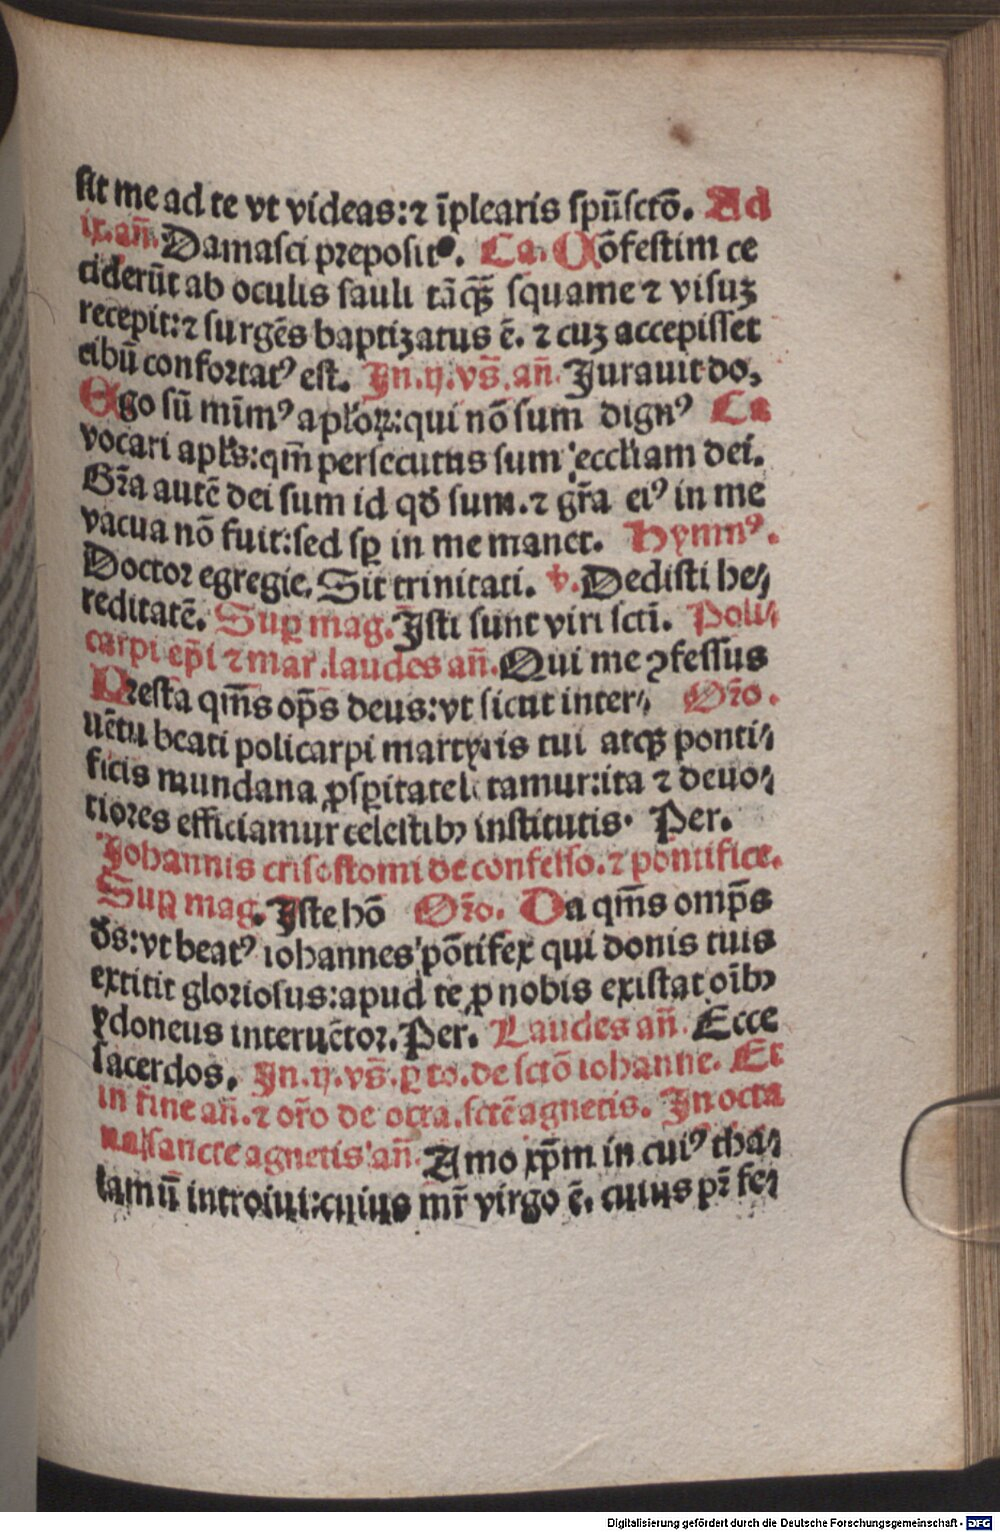 sit me ad te vt videas: ⁊ īplearis spūsctō. Ad
ix. an̄. Damasci preposit⁹. Ca. Cōfestim ce
ciderūt ab oculis sauli tāqꝫ squame ⁊ visuꝫ
recepit: ⁊ surgēs baptizatus ē. ⁊ cuꝫ accepisset
cibū confortat⁹ est. Jn. ij. vs̄. an̄. Jurauit do,
Ego sū mīm⁹ apl'oꝝ: qui nō sum dign⁹ Ca
vocari apl's: qm̄ persecutus sum eccl'iam dei.
Gr̄a autē dei sum id qd̄ sum. ⁊ gr̄a ei⁹ in me
vacua nō fuit: sed sꝑ in me manet. Hymn⁹.
Doctor egregie. Sit trinitati. v̄. Dedisti he⸗
reditatē. Suꝑ mag. Jsti sunt viri scti. Poli⸗
carpi ep̄i ⁊ mar. laudes an̄. Qui me ꝯfessus
Presta qm̄s op̄s deus: vt sicut inter⸗ Or̄o.
uētu beati policarpi martyris tui atqꝫ ponti⸗
ficis mundana ꝓsꝑitate l tamur: ita ⁊ deuo⸗
tiores efficiamur celestibꝫ institutis. Per.
Johannis crisostomi de confesso. ⁊ pontifice.
Suꝑ mag. Jste hō Or̄o. Da qm̄s omp̄s
ds̄: vt beat⁹ iohannes pōtifex qui donis tuis
extitit gloriosus: apud te ꝓ nobis existat oībꝫ
ydoneus interuētor. Per. Laudes an̄. Ecce
sacerdos. Jn. ij. vs̄. ꝑ to. de sctō iohanne. Et
in fine an̄. ⁊ or̄o de octa. sctē agnetis. Jn octa
ua sancte agnetis an̄. Amo xp̄m in cui⁹ tha⸗
lamū introiui: cuius mr̄ virgo ē. cuius pr̄ fe⸗
Digitalisierung gefördert durch die Deutsche Forschungsgemeinschaft - DFG